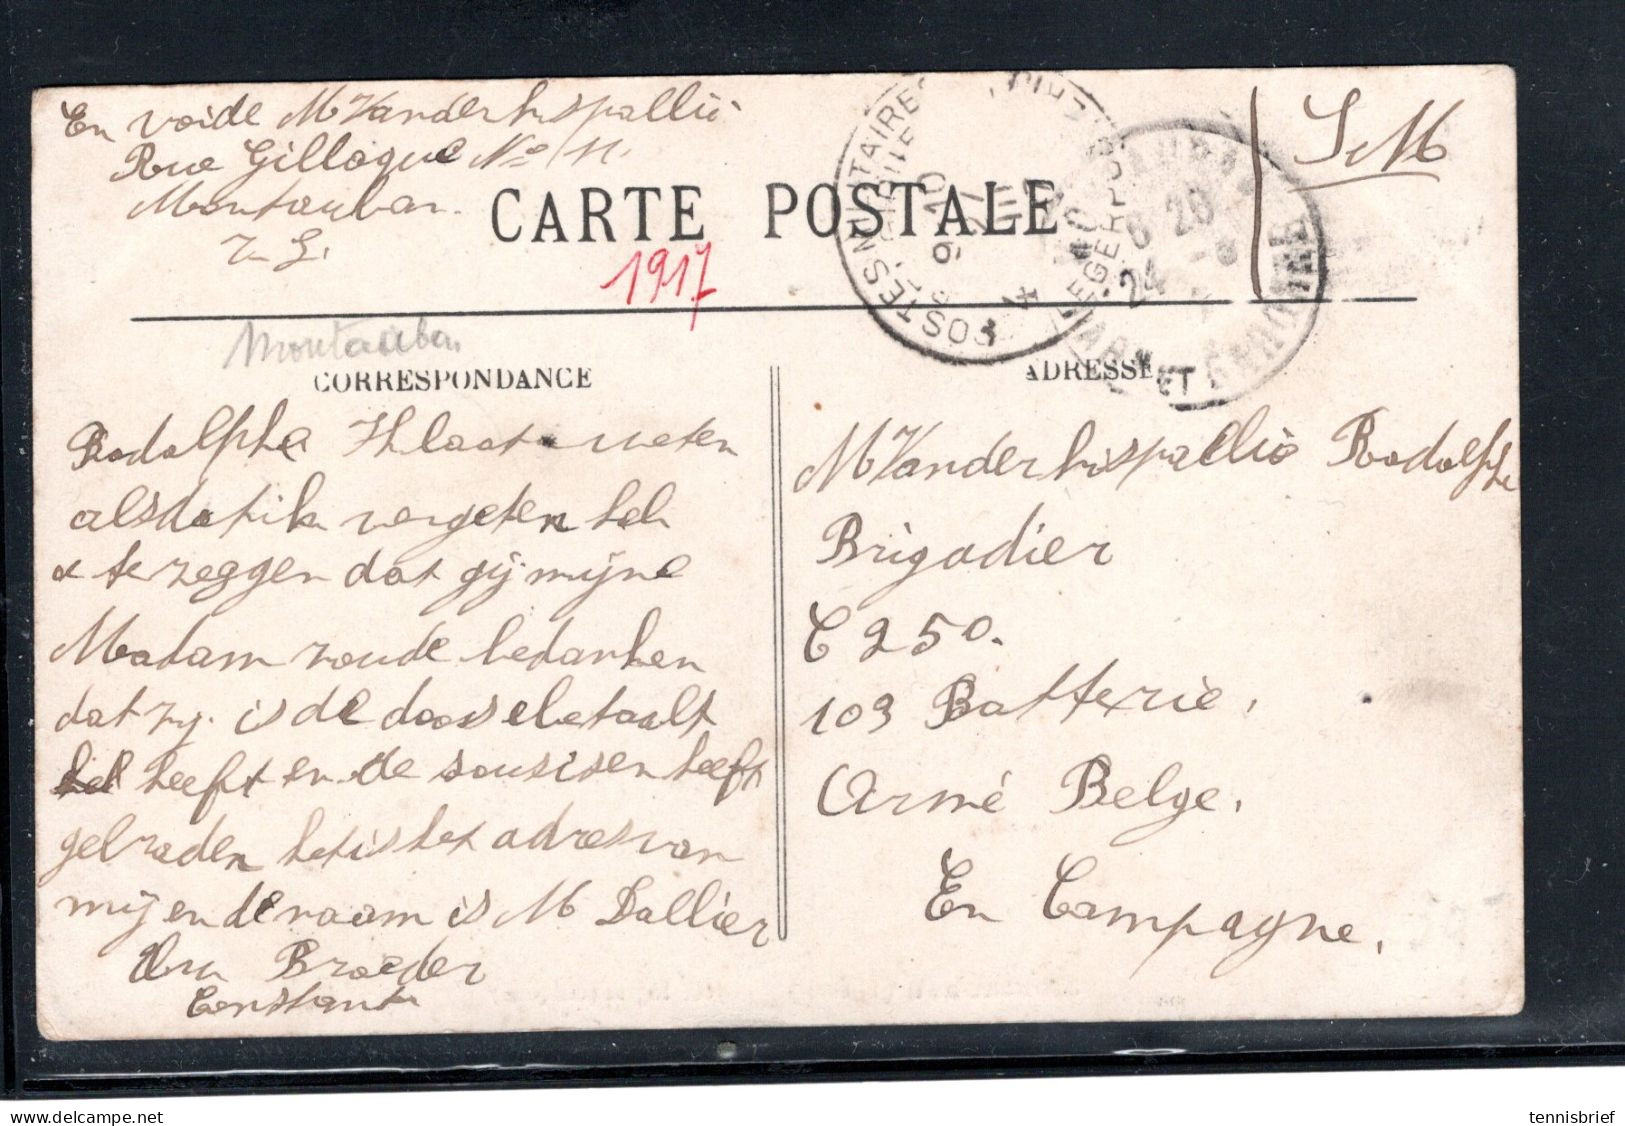 En voide M Vanderhispallië
Rue Gillaque No 11.
Montauban.
T. G.
S M
CARTE POSTALE
1917
POSTES MILITAIRES
TARN ET GARONNE
Montauban
CORRESPONDANCE
ADRESSE
Rodolphe Ihlaat weten
alsdat ik vergeten heb
te zeggen dat gij mijne
Madam zoude bedanken
dat zy. is de doosse betaalt
heeft en de sousisen heeft
gebraden het is het adres van
mij en de naam is M Dallier
Broeder
Constant
M Vanderhispallië Rodolphe
Brigadier
C 250.
103 Batterie,
Armé Belge,
En Campagne,
tennisbrief.com